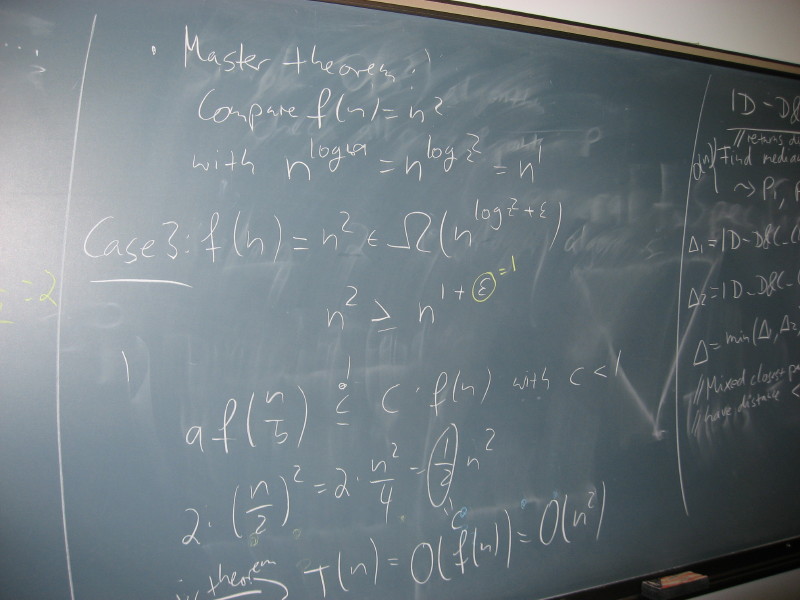 ...
=2
• Master theorem:
Compare f(n) = n²
with n^log_b a = n^log_2 2 = n^1
Case 3: f(n) = n² ∈ Ω(n^(log_2 2 + ε))
n² ≥ n^(1 + ε) = 1
a f(n/b) ≤ c · f(n) with c < 1
2 · (n/2)² = 2 · n²/4 = (1/2) n²
" c
theorem T(n) = O(f(n)) = O(n²)
1D - D&
// returns
Find
~> P₁,
Δ₁ = 1D - D&C - C
Δ₂ = 1D - D&C - C
Δ = min(Δ₁, Δ₂
// Mixed closest pa
// have distance <